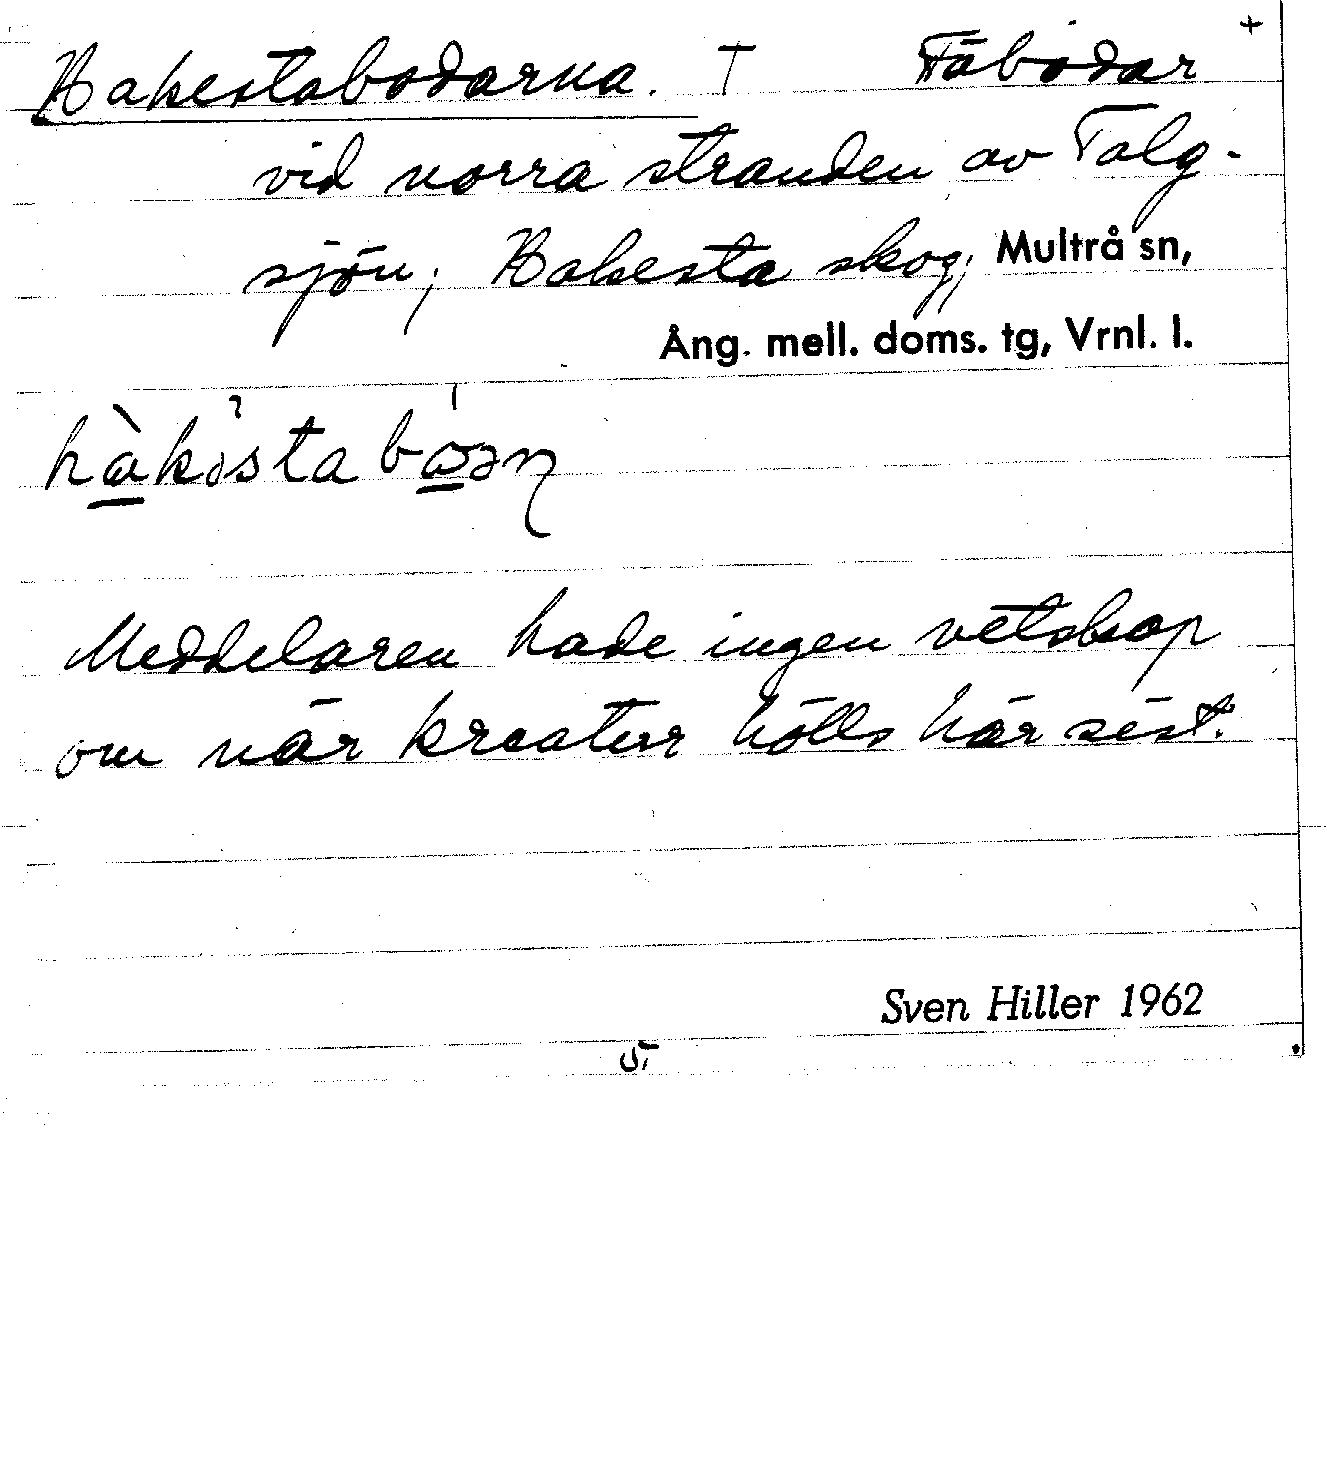 +
Hakestabodarna. † Fäbodar
vid norra stranden av Talg-
sjön; Hakesta skog; Multrå sn,
Ång. mell. doms. tg, Vrnl. l.
Meddelaren hade ingen vetskap
om när kreatur hölls här sist.
Sven Hiller 1962